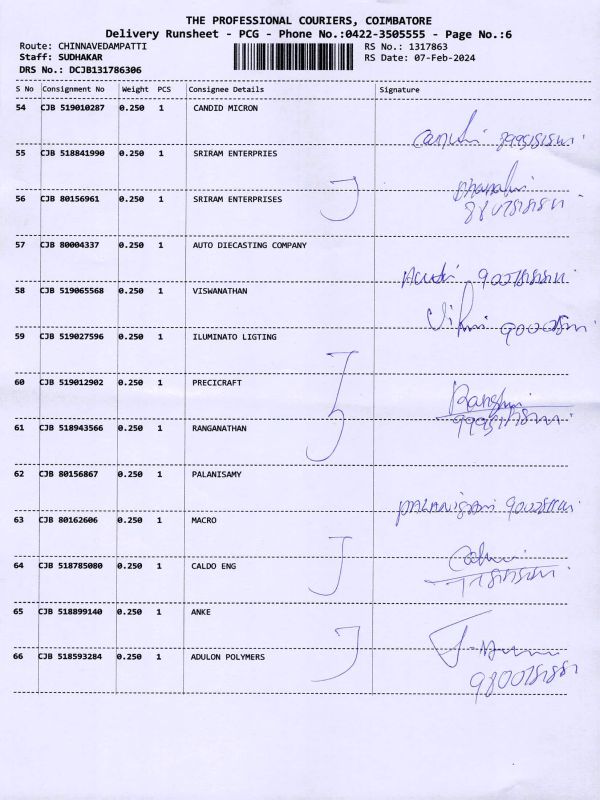 THE PROFESSIONAL COURIERS, COIMBATORE
Delivery Runsheet - PCG - Phone No.:0422-3505555 - Page No.:6
Route: CHINNAVEDAMPATTI RS No.: 1317863
Staff: SUDHAKAR RS Date: 07-Feb-2024
DRS No.: DCJB131786306
S No Consignment No Weight PCS Consignee Details Signature
54 CJB 519010287 0.250 1 CANDID MICRON
55 CJB 518841990 0.250 1 SRIRAM ENTERPRIES
56 CJB 80156961 0.250 1 SRIRAM ENTERPRISES
57 CJB 80004337 0.250 1 AUTO DIECASTING COMPANY
58 CJB 519065568 0.250 1 VISWANATHAN
59 CJB 519027596 0.250 1 ILUMINATO LIGTING
60 CJB 519012902 0.250 1 PRECICRAFT
61 CJB 518943566 0.250 1 RANGANATHAN
62 CJB 80156867 0.250 1 PALANISAMY
63 CJB 80162606 0.250 1 MACRO
64 CJB 518785080 0.250 1 CALDO ENG
65 CJB 518899140 0.250 1 ANKE
66 CJB 518593284 0.250 1 ADULON POLYMERS